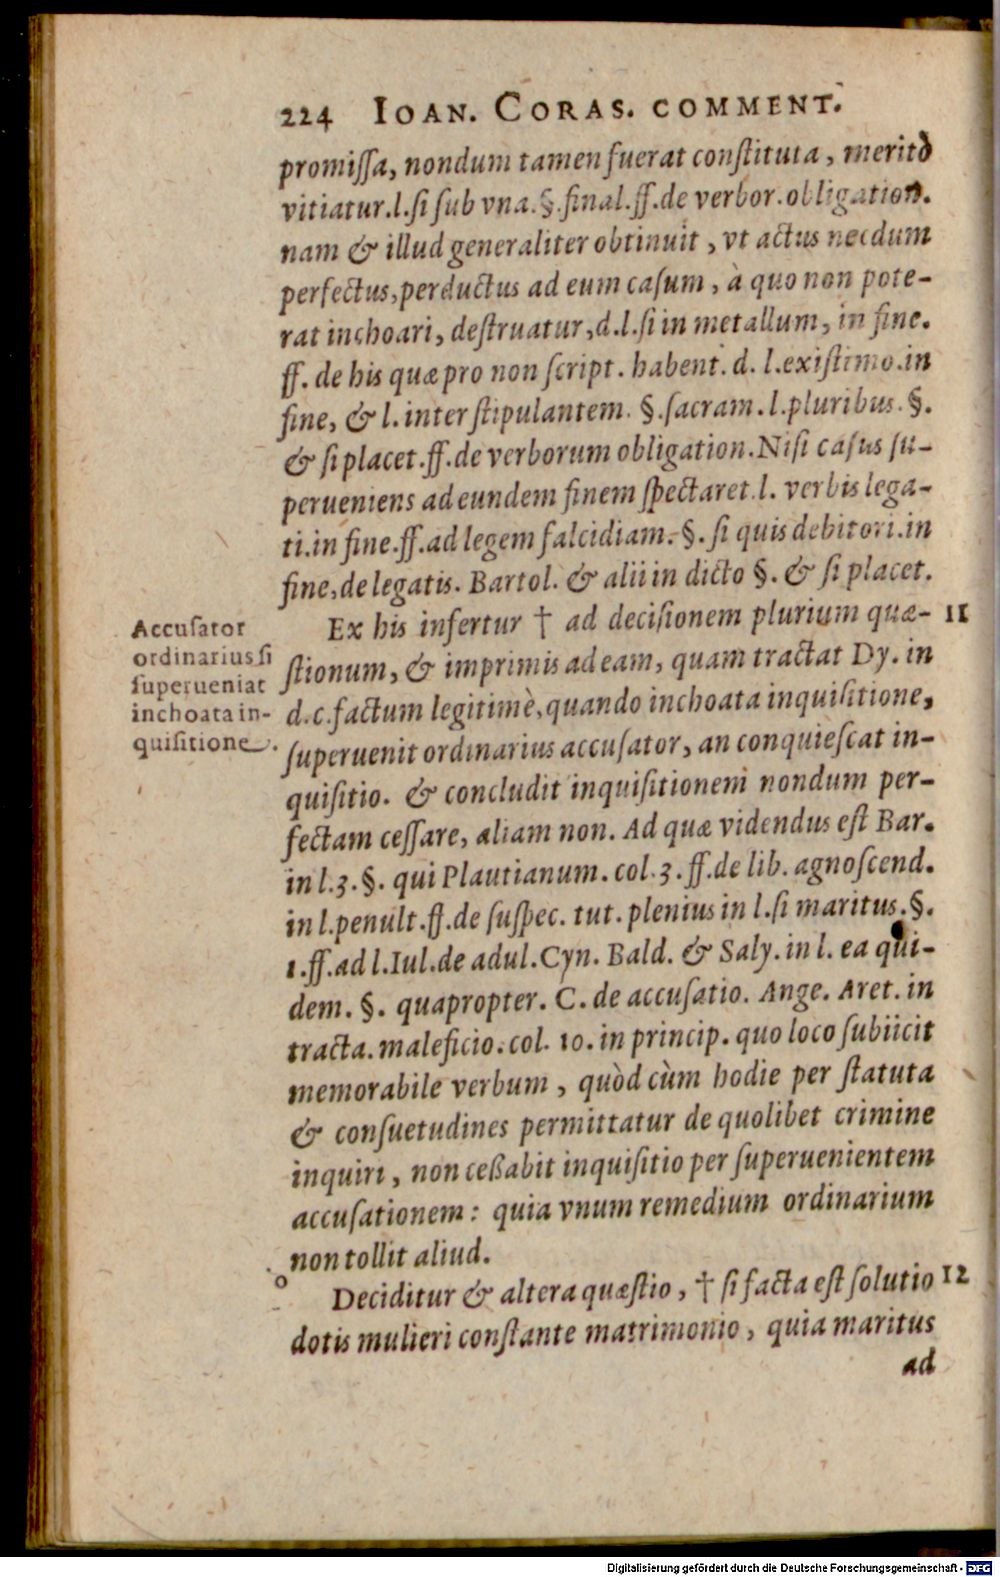 224 IOAN. CORAS. COMMENT.
promiſſa, nondum tamen fuerat conſtituta, meritò
vitiatur. l. ſi ſub vna. §. final. ff. de verbor. obligation.
nam & illud generaliter obtinuit, vt actus necdum
perfectus, perductus ad eum caſum, à quo non pote-
rat inchoari, deſtruatur, d. l. ſi in metallum, in fine.
ff. de his quæ pro non ſcript. habent. d. l. exiſtimo. in
fine, & l. inter ſtipulantem. §. ſacram. l. pluribus. §.
& ſi placet. ff. de verborum obligation. Niſi caſus ſu-
perueniens ad eundem finem ſpectaret. l. verbis lega-
ti. in fine. ff. ad legem falcidiam. §. ſi quis debitori. in
fine, de legatis. Bartol. & alii in dicto §. & ſi placet.
Ex his infertur † ad deciſionem plurium quæ- 11
ſtionum, & imprimis ad eam, quam tractat Dy. in
d. c. factum legitimè, quando inchoata inquiſitione,
ſuperuenit ordinarius accuſator, an conquieſcat in-
quiſitio. & concludit inquiſitionem nondum per-
fectam ceſſare, aliam non. Ad quæ videndus eſt Bar.
in l. 3. §. qui Plautianum. col. 3. ff. de lib. agnoſcend.
in l. penult. ff. de ſuſpec. tut. plenius in l. ſi maritus. §.
1. ff. ad l. Iul. de adul. Cyn. Bald. & Saly. in l. ea qui-
dem. §. quapropter. C. de accuſatio. Ange. Aret. in
tracta. maleficio. col. 10. in princip. quo loco ſubiicit
memorabile verbum, quòd cùm hodie per ſtatuta
& conſuetudines permittatur de quolibet crimine
inquiri, non ceßabit inquiſitio per ſuperuenientem
accuſationem: quia vnum remedium ordinarium
non tollit aliud.
Deciditur & altera quæſtio, † ſi facta eſt ſolutio 12
dotis mulieri conſtante matrimonio, quia maritus
ad
Accuſator
ordinarius ſi
ſuperueniat
inchoata in-
quiſitione.
Digitalisierung gefördert durch die Deutsche Forschungsgemeinschaft - DFG